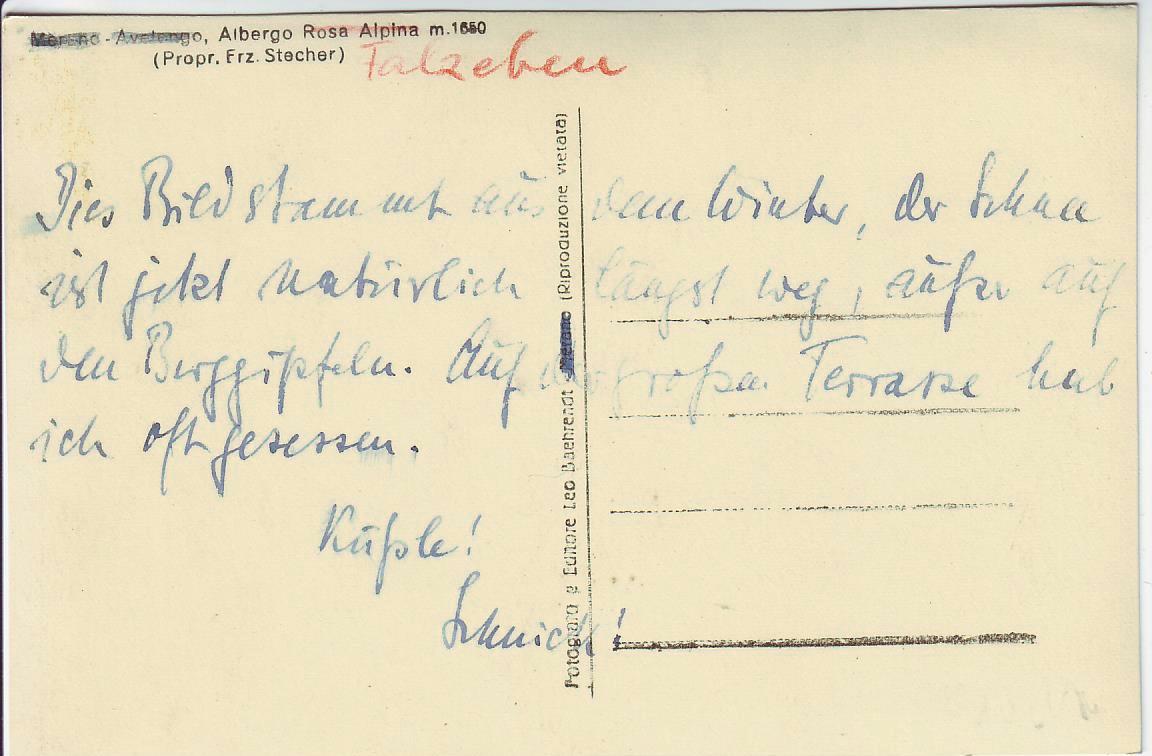 Merano - Avelengo, Albergo Rosa Alpina m. 1650
(Propr. Frz. Stecher)
Falzeben
Dies Bild stammt aus dem Winter, der Schnee
ist jetzt natürlich längst weg, außer auf
den Berggipfeln. Auf der großen Terrasse hab
ich oft gesessen.
Küßle!
Schnick!
Fotografo e Editore Leo Baehrendt - Merano (Riproduzione vietata)